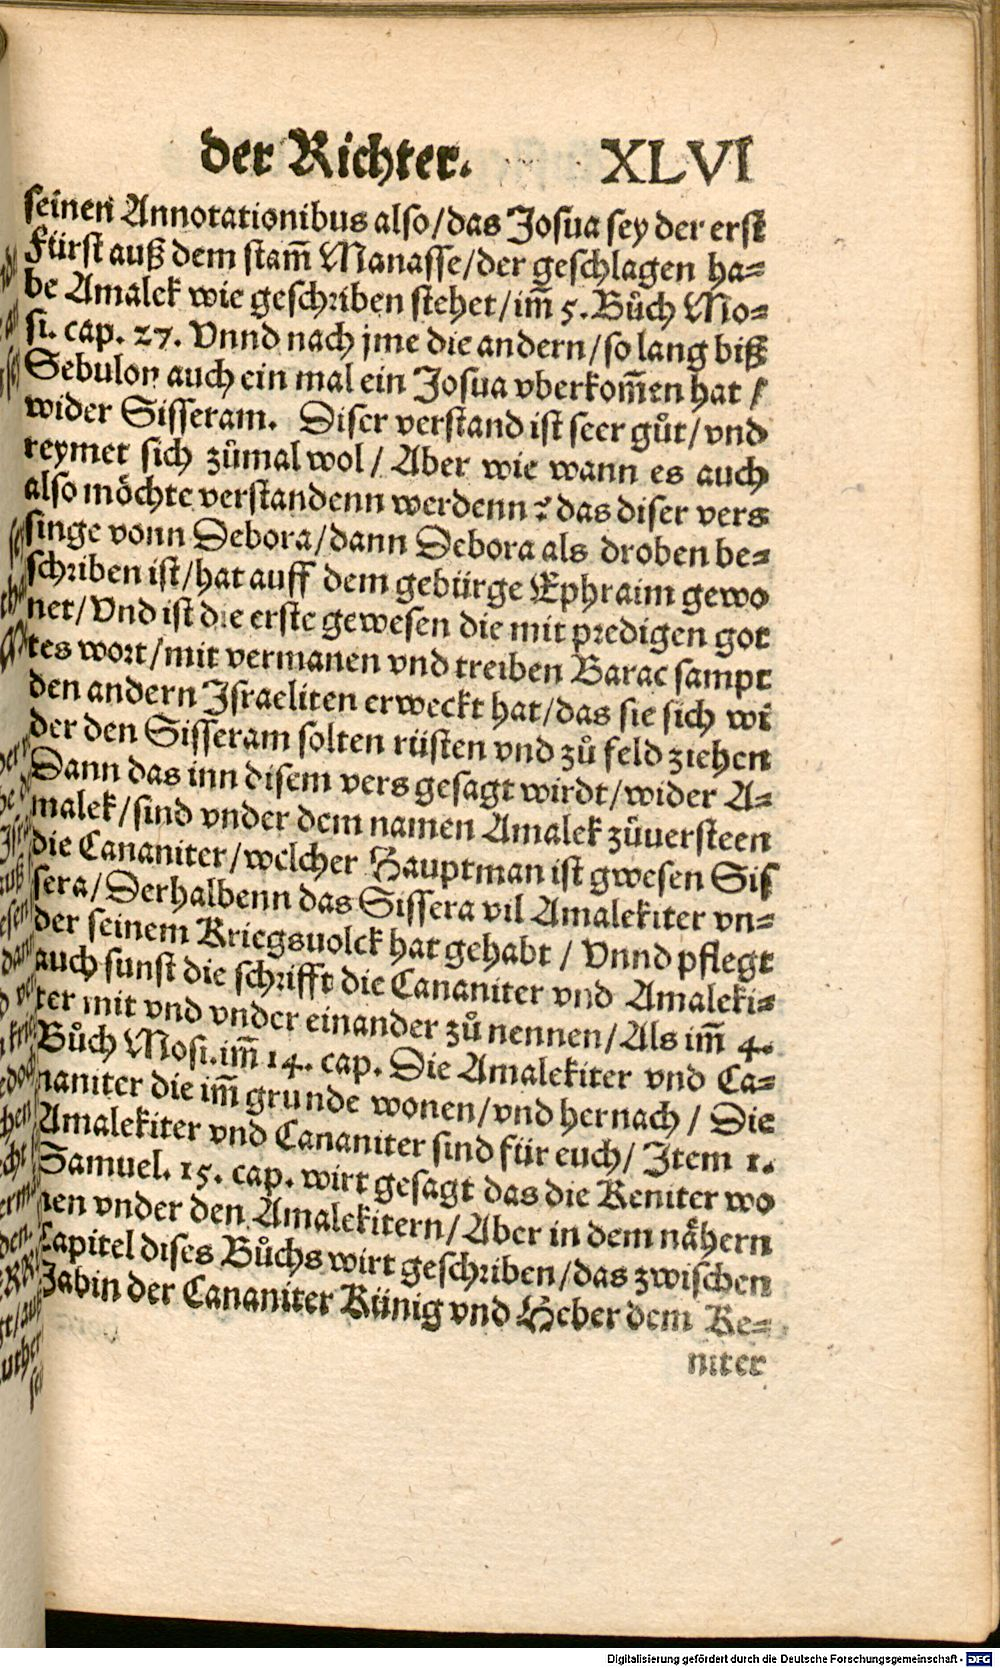 der Richter. XLVI
seinen Annotationibus also/das Josua sey der erst
Fürst auß dem stam̃ Manasse/der geschlagen ha⸗
be Amalek wie geschriben stehet/im̃ 5. Bůch Mo⸗
si. cap. 27. Vnnd nach jme die andern/so lang biß
Sebulon auch ein mal ein Josua vberkom̃en hat /
wider Sisseram. Diser verstand ist seer gůt/vnd
reymet sich zůmal wol / Aber wie wann es auch
also möchte verstandenn werdenn? das diser vers
singe vonn Debora/dann Debora als droben be⸗
schriben ist/hat auff dem gebürge Ephraim gewo
net/Vnd ist die erste gewesen die mit predigen got
tes wort/mit vermanen vnd treiben Barac sampt
den andern Israeliten erweckt hat/das sie sich wi
der den Sisseram solten rüsten vnd zů feld ziehen
Dann das inn disem vers gesagt wirdt/wider A⸗
malek/sind vnder dem namen Amalek zůuersteen
die Cananiter/welcher Hauptman ist gwesen Sis
sera/Derhalbenn das Sissera vil Amalekiter vn⸗
der seinem Kriegsuolck hat gehabt / Vnnd pflegt
auch sunst die schrifft die Cananiter vnd Amaleki⸗
ter mit vnd vnder einander zů nennen/Als im̃ 4.
Bůch Mosi.im̃ 14. cap. Die Amalekiter vnd Ca⸗
naniter die im̃ grunde wonen/vnd hernach / Die
Amalekiter vnd Cananiter sind für euch/ Item 1.
Samuel. 15. cap. wirt gesagt das die Keniter wo
nen vnder den Amalekitern/Aber in dem nähern
Capitel dises Bůchs wirt geschriben/das zwischen
Jabin der Cananiter Künig vnd Heber dem Ke⸗
niter
Digitalisierung gefördert durch die Deutsche Forschungsgemeinschaft - DFG